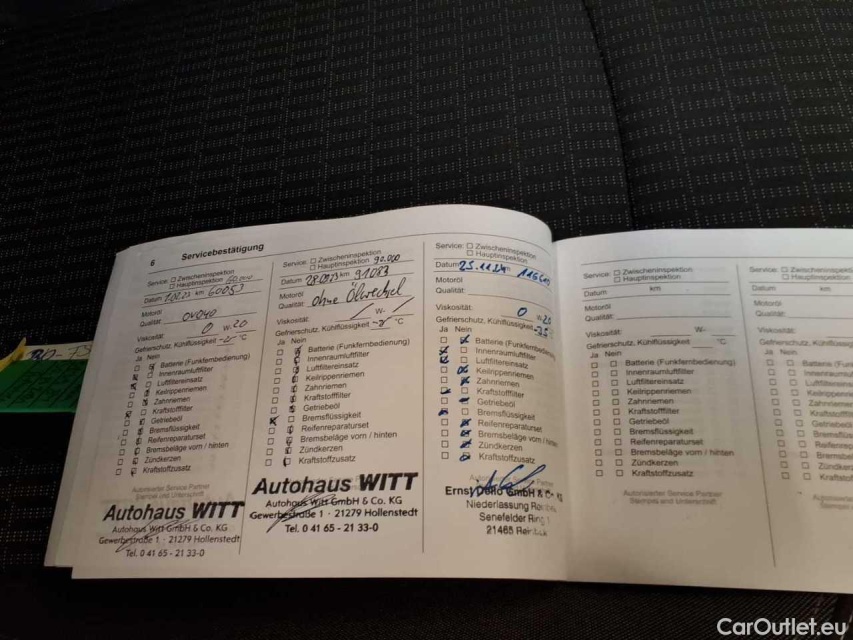 6 Servicebestätigung
Service: Zwischeninspektion
Hauptinspektion 60.000
Datum km 60053
Motoröl
Qualität: OV040
Viskosität: 0 W- 20
Gefrierschutz, Kühlflüssigkeit °C
Ja Nein
Batterie (Funkfernbedienung)
Innenraumluftfilter
Luftfiltereinsatz
Keilrippenriemen
Zahnriemen
Kraftstofffilter
Getriebeöl
Bremsflüssigkeit
Reifenreparaturset
Bremsbeläge vorn / hinten
Zündkerzen
Kraftstoffzusatz
Autorisierter Service Partner
Stempel und Unterschrift
Autohaus WITT
Autohaus Witt GmbH & Co. KG
Gewerbestraße 1 · 21279 Hollenstedt
Tel. 0 41 65 - 21 33-0
Service: Zwischeninspektion
Hauptinspektion 90.000
Datum km 91083
Motoröl
Qualität: Ohne Ölwechsel
Viskosität: W-
Gefrierschutz, Kühlflüssigkeit °C
Ja Nein
Batterie (Funkfernbedienung)
Innenraumluftfilter
Luftfiltereinsatz
Keilrippenriemen
Zahnriemen
Kraftstofffilter
Getriebeöl
Bremsflüssigkeit
Reifenreparaturset
Bremsbeläge vorn / hinten
Zündkerzen
Kraftstoffzusatz
Autohaus WITT
Autohaus Witt GmbH & Co. KG
Gewerbestraße 1 · 21279 Hollenstedt
Tel. 0 41 65 - 21 33-0
Service: Zwischeninspektion
Hauptinspektion
Datum 25.11.24
Motoröl
Qualität:
Viskosität: 0 W-
Gefrierschutz, Kühlflüssigkeit
Ja Nein
Batterie (Funkfernbedienung
Innenraumluftfilter
Luftfiltereinsatz
Keilrippenriemen
Zahnriemen
Kraftstofffilter
Getriebeöl
Bremsflüssigkeit
Reifenreparaturset
Bremsbeläge vorn /
Zündkerzen
Kraftstoffzusatz
Ernst GmbH &
Niederlassung
Senefelder Ring
21465
Service: Zwischeninspektion
Hauptinspektion
Datum km
Motoröl
Qualität:
Viskosität: W-
Gefrierschutz, Kühlflüssigkeit °C
Ja Nein
Batterie (Funkfernbedienung)
Innenraumluftfilter
Luftfiltereinsatz
Keilrippenriemen
Zahnriemen
Kraftstofffilter
Getriebeöl
Bremsflüssigkeit
Reifenreparaturset
Bremsbeläge vorn / hinten
Zündkerzen
Kraftstoffzusatz
Autorisierter Service Partner
Stempel und Unterschrift
Service: Zwischeninspektion
Hauptinspektion
Datum km
Motoröl
Qualität:
Viskosität:
Gefrierschutz, Kühlflüss
Ja Nein
Batterie (Funkf
Innenraumluftf
Luftfiltereinsa
Keilrippenrie
Zahnriemen
Kraftstofffilt
Getriebeöl
Bremsflüss
Reifenrepa
Bremsbelä
Zündkerz
Kraftstoff
CarOutlet.eu